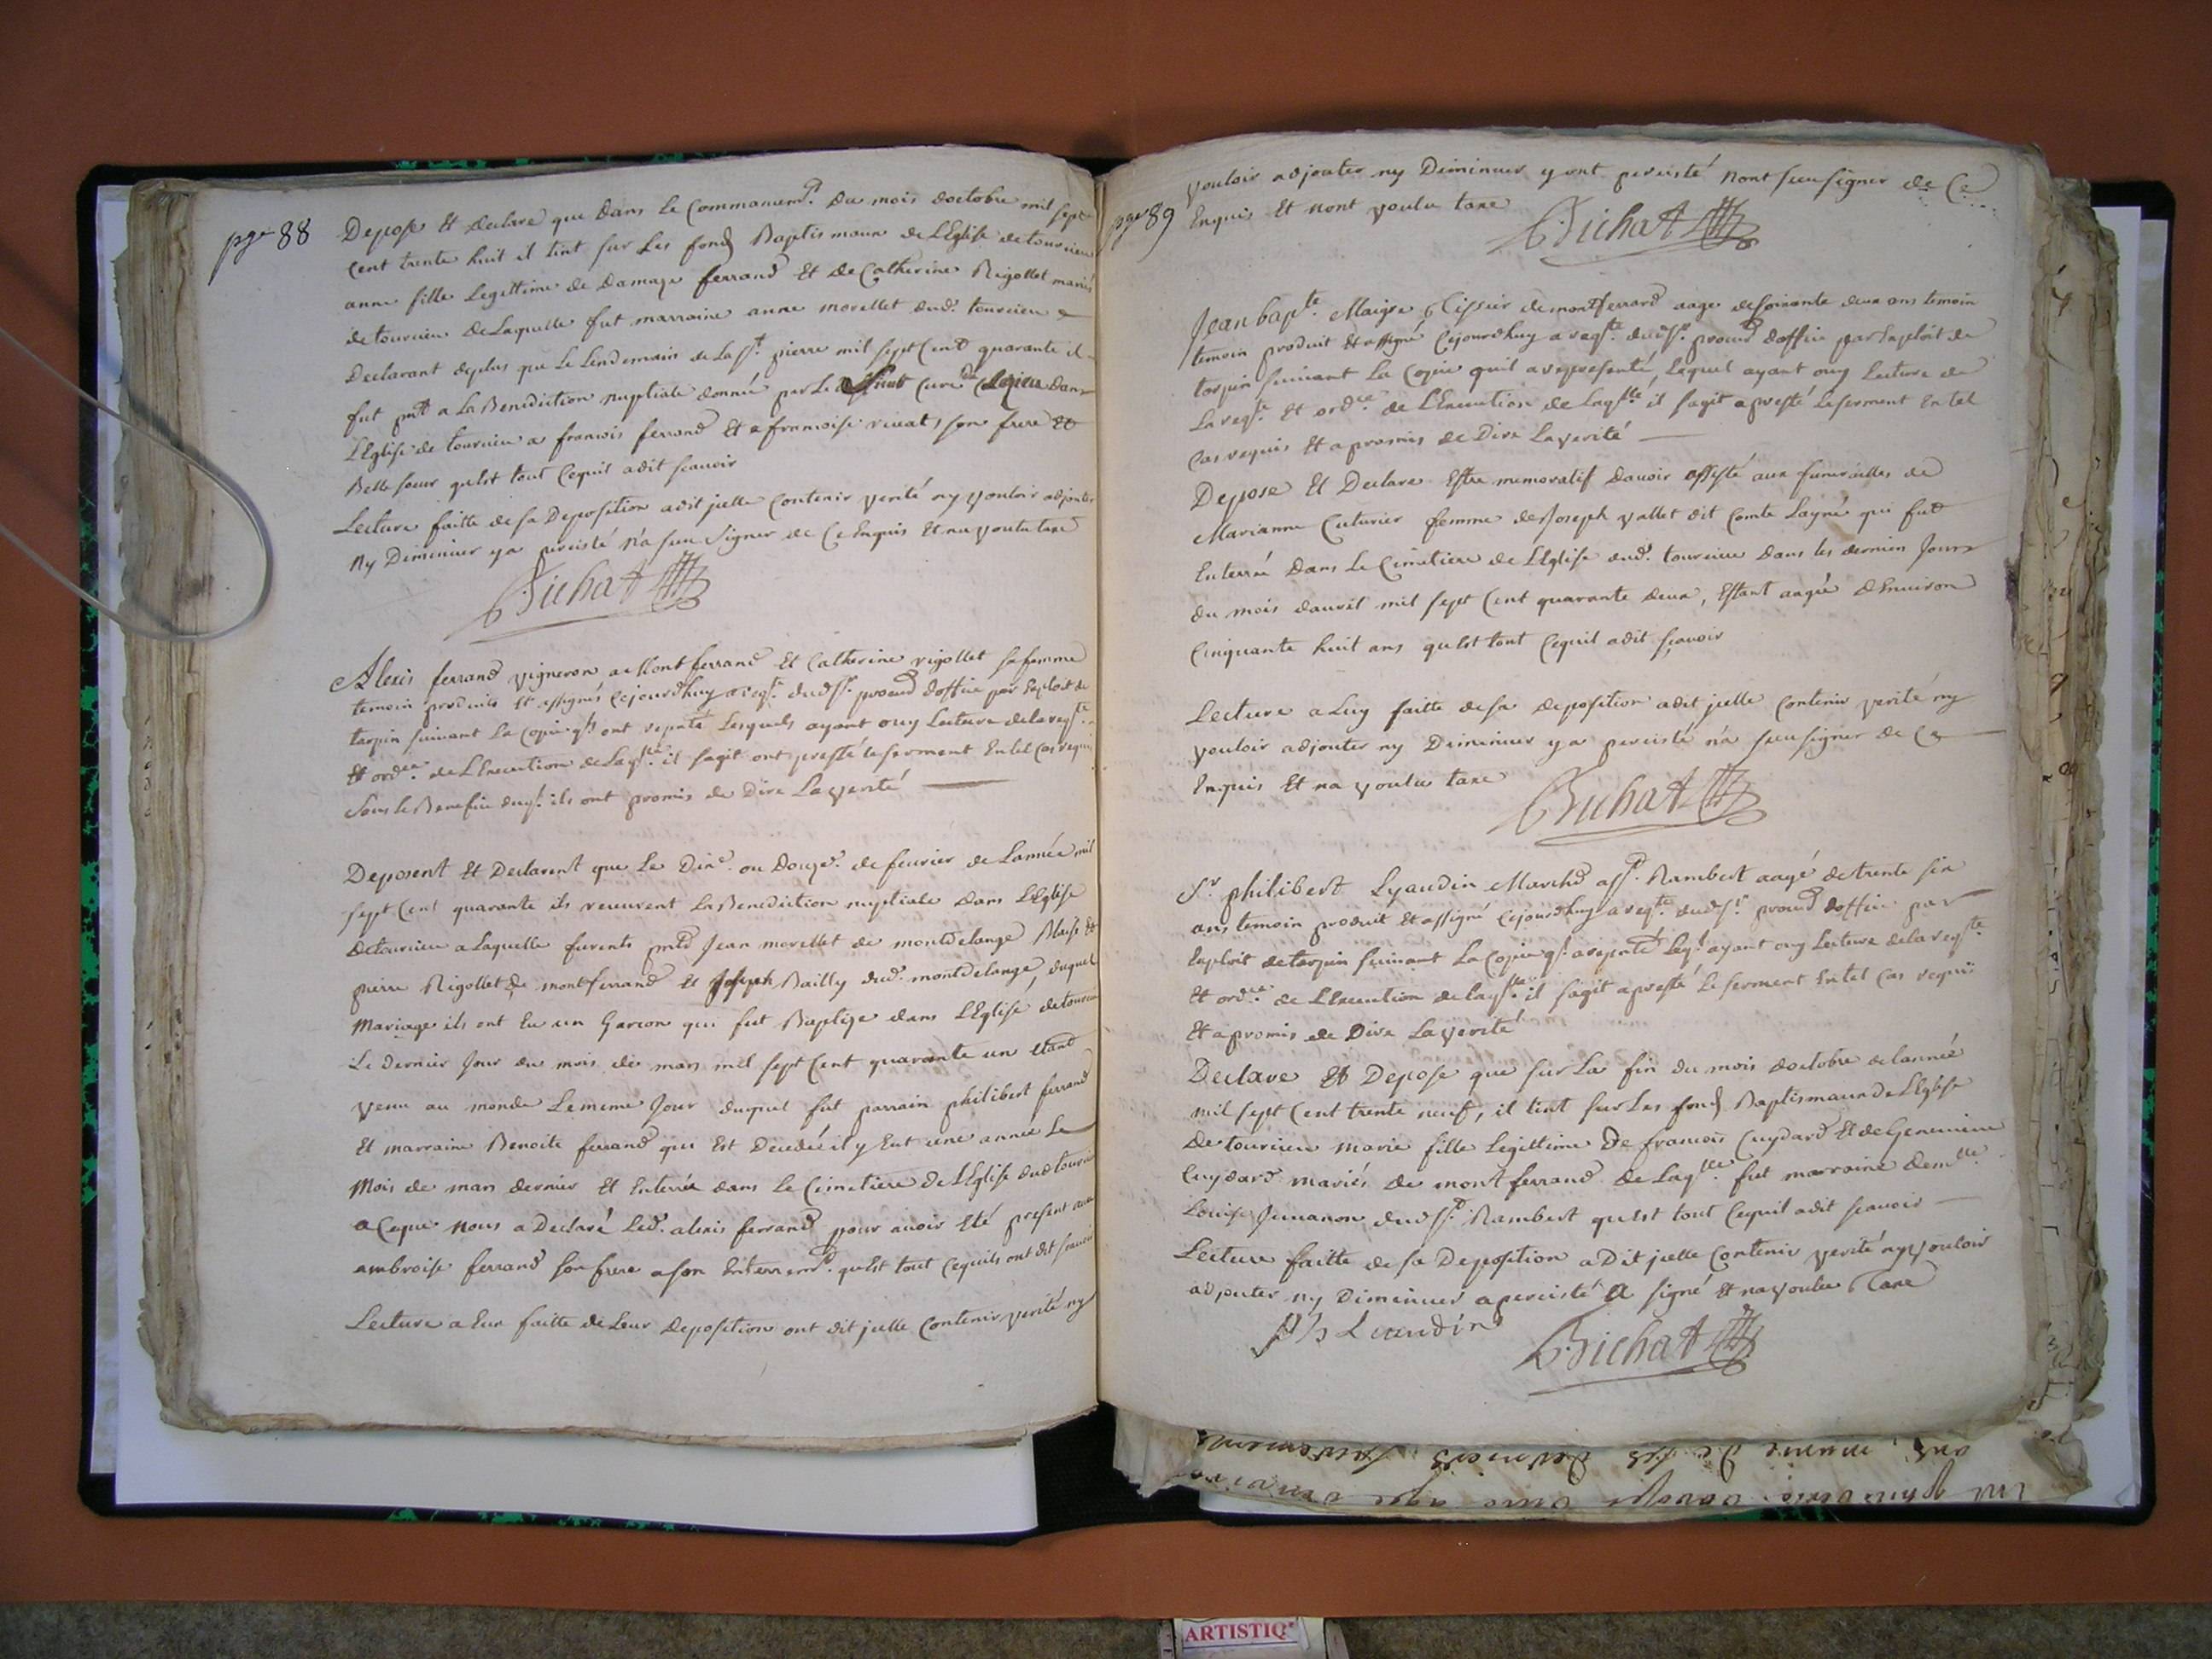 pge 88
Depose Et declare que dans Le Commancemt. du mois doctobre mil sept
Cent trente huit il tint sur Les fonds Baptismaux de LEglise de tourcieu
anne fille Legittime de Damaze ferrand Et de Catherine Rigollet mariés
de tourcieu de Laquelle fut marraine anne morellet dud. tourcieu
Declarant deplus que Le Lendemain de La st. pierre mil sept Cent quarante il
fut pnt a La Benediction nuptiale donnée par Le Curé dans
LEglise de tourcieu a francois ferrand Et a francoise son frere Et
Belle soeur quest tout Cequil adit scavoir
Lecture faitte de sa Deposition adit jcelle Contenir verité ny vouloir adjouter
ny Diminuer ya percisté n'a sceu signer de Ce Enquis Et na voulu taxe
Bichat
Alexis ferrand vigneron a Montferrand Et Catherine rigollet sa femme
temoin produits Et assignés Cejourdhuy a reqte. dudsr. procud doffice par Exploit de
tarpin suivant La Copie qls ont repnté Lesquels ayant ouy Lecture de la reqte.
Et ordce. de LExecution de Laqlle. il sagit ont presté le serment En tel Cas requis
Sous le Benefice duql. ils ont promis de Dire La verité
Deposent Et Declarent que Le Dixe. ou Douze. de feuvrier de Lannée mil
sept Cent quarante ils receurent La Benediction nuptiale dans LEglise
de tourcieu a Laquelle furents pnts Jean morellet de montdelange Blaise Et
pierre Rigollet de montferrand Et Joseph Bailly dud. montdelange, duquel
Mariage ils ont Eu un Garcon qui fut Baptize dans LEglise de tourcieu
Le dernier Jour du mois de mars mil sept Cent quarante un Etant
venu au monde Lememe Jour duquel fut parrain philibert ferrand
Et marraine Benoite ferrand qui Est Decedé il y Eut une année Le
Mois de mars dernier Et Enterré dans Le Cimetiere de LEglise dud tourcieu
a Ceque nous a Declaré Led. alexis ferrand pour avoir Eté present avec
ambroise ferrand son frere a son Enterremt. quest tout Cequils ont dit scavoir
Lecture a Eux faitte de Leur Deposition ont dit jcelle Contenir verité ny
pge 89
vouloir adjouter ny Diminuer y ont percisté nont sceu signer de Ce
Enquis Et nont voulu taxe
Bichat
Jean bapte. Maigre de montferrand aage de soixante deux ans temoin
temoin produit Et assigné Cejourdhuy a reqte. dudsr. procud doffice par Exploit de
tarpin suivant La Copie quil a representé, Lequel ayant ouy Lecture de
La reqte. Et ordce. de LExecution de Laqlle il sagit a presté le serment En tel
Cas requis Et a promis de Dire La verité
Depose Et Declare Estre memoratif davoir assisté aux funerailles de
Marianne Cuturier femme de Joseph vallet dit Comte Layné qui fut
Enterrée Dans Le Cimetiere de LEglise dud. tourcieu Dans les derniers Jours
du mois davril mil sept Cent quarante deux, Estant aagée dEnviron
Cinquante huit ans quest tout Cequil adit scavoir
Lecture a Luy faitte de sa deposition adit jcelle Contenir verité ny
vouloir adjouter ny Diminuer ya percisté n'a sceu signer de Ce
Enquis Et na voulu taxe
Bichat
Sr. philibert Lyaudin Marchd a st. Rambert aagé de trente six
ans temoin produit Et assigné Cejourdhuy a reqte. dudsr. procud doffice par
Exploit de tarpin suivant La Copie ql. a repnté Leql. ayant ouy Lecture de la reqte
Et ordce. de LExecution de Laqlle. il sagit a presté Le serment En tel Cas requis
Et a promis de Dire La verité
Declare Et Depose que sur La fin du mois doctobre de lannée
mil sept Cent trente neuf, il tint sur Les fonds Baptismaux de LEglise
De tourcieu marie fille Legittime De francois Cuydard Et de Genevieve
Cuydard mariés de montferrand de Laqlle. fut marraine demlle.
Louise Juvanon dud st. Rambert quest tout Cequil adit scavoir
Lecture faitte de sa Deposition a Dit jcelle Contenir verité ny vouloir
adjouter ny Diminuer a percisté a signé Et na voulu Taxe
Lyaudin
Bichat
ARTISTIQ